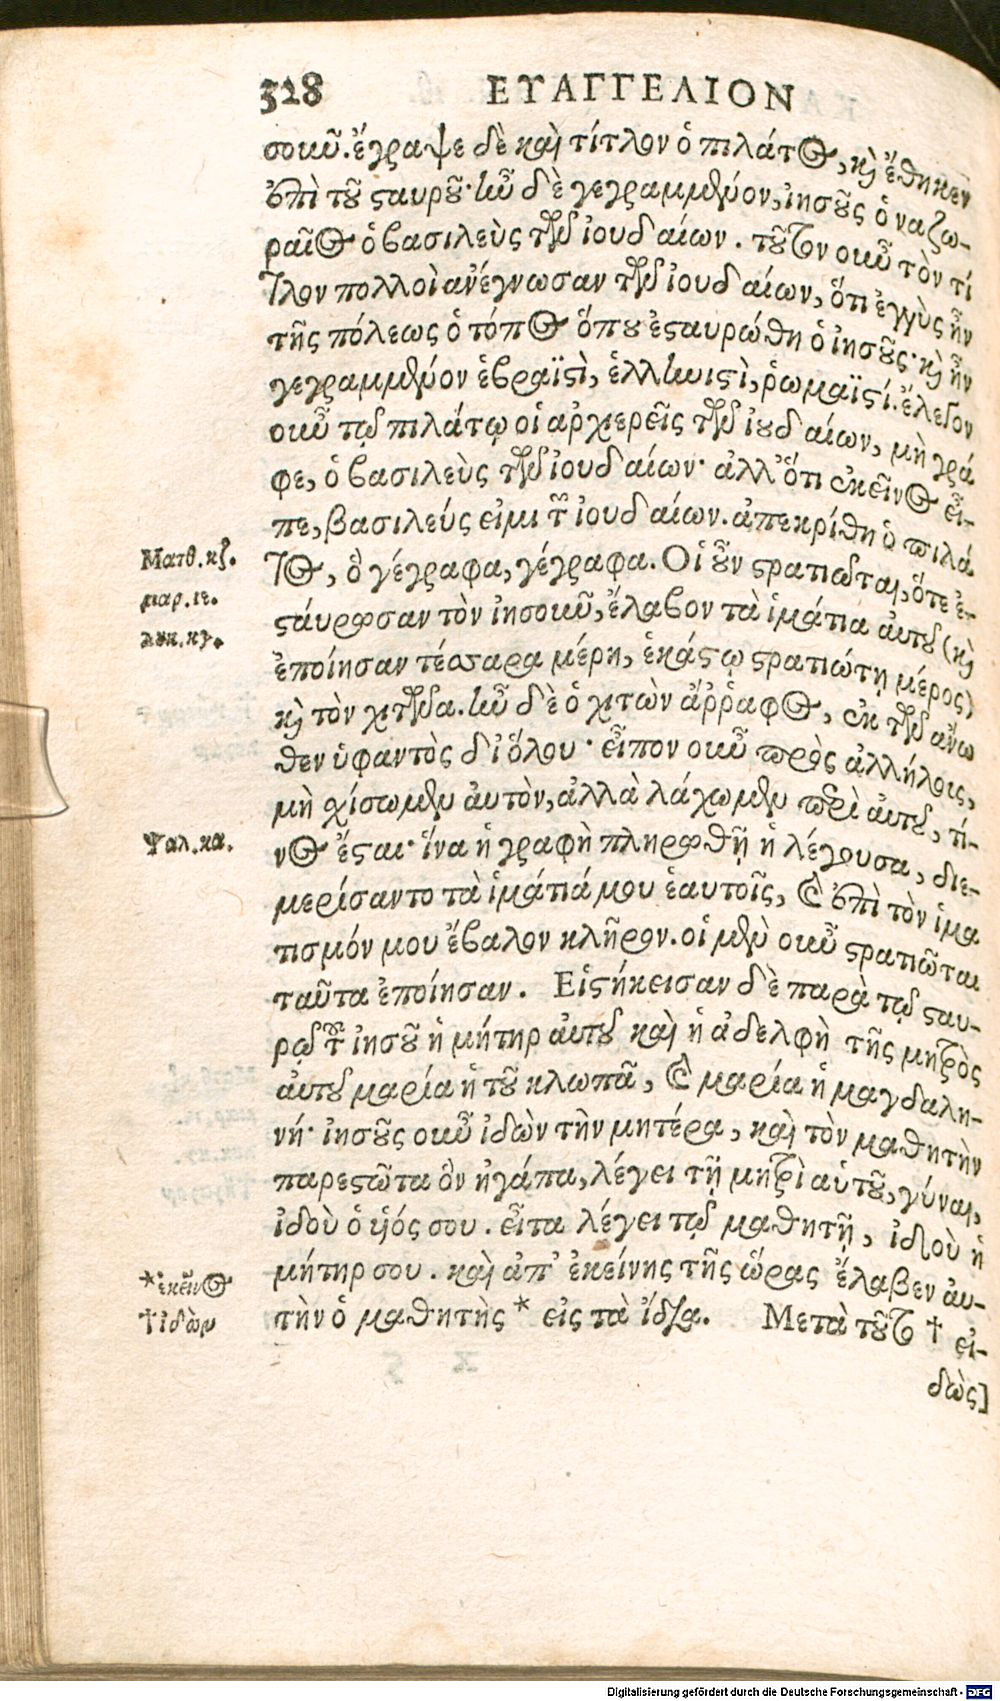 328 ΕΥΑΓΓΕΛΙΟΝ
σοιῦ. ἔγραψε δὲ καὶ τίτλον ὁ πιλάτος, κὶ ἔθηκεν
ἐπὶ τοῦ σταυροῦ· ἦν δὲ γεγραμμένον, ἰησοῦς ὁ ναζω-
ραῖος ὁ βασιλεὺς τῶν ἰουδαίων. τοῦτον οὖν τὸν τί
τλον πολλοὶ ἀνέγνωσαν τῶν ἰουδαίων, ὅτι ἐγγὺς ἦν
τῆς πόλεως ὁ τόπος ὅπου ἐσταυρώθη ὁ ἰησοῦς· κὶ ἦν
γεγραμμένον ἑβραϊστὶ, ἑλληνιστὶ, ῥωμαϊστί. ἔλεγον
οὖν τῷ πιλάτῳ οἱ ἀρχιερεῖς τῶν ἰουδαίων, μὴ γρά
φε, ὁ βασιλεὺς τῶν ἰουδαίων· ἀλλ' ὅτι ἐκεῖνος εἶ-
πε, βασιλεύς εἰμι τῶν ἰουδαίων. ἀπεκρίθη ὁ πιλά
τος, ὃ γέγραφα, γέγραφα. Οἱ οὖν στρατιῶται, ὅτε ἐ-
σταύρωσαν τὸν ἰησοῦν, ἔλαβον τὰ ἱμάτια αὐτοῦ (κὶ
ἐποίησαν τέσσαρα μέρη, ἑκάστῳ στρατιώτῃ μέρος)
κὶ τὸν χιτῶνα. ἦν δὲ ὁ χιτὼν ἄῤῥαφος, ἐκ τῶν ἄνω
θεν ὑφαντὸς δι' ὅλου· εἶπον οὖν πρὸς ἀλλήλους,
μὴ σχίσωμεν αὐτὸν, ἀλλὰ λάχωμεν περὶ αὐτοῦ, τί-
νος ἔσται· ἵνα ἡ γραφὴ πληρωθῇ ἡ λέγουσα, διε-
μερίσαντο τὰ ἱμάτιά μου ἑαυτοῖς, καὶ ἐπὶ τὸν ἱμα
τισμόν μου ἔβαλον κλῆρον. οἱ μὲν οὖν στρατιῶται
ταῦτα ἐποίησαν. Εἱστήκεισαν δὲ παρὰ τῷ σταυ-
ρῷ τοῦ ἰησοῦ ἡ μήτηρ αὐτοῦ καὶ ἡ ἀδελφὴ τῆς μητρὸς
αὐτοῦ μαρία ἡ τοῦ κλωπᾶ, καὶ μαρία ἡ μαγδαλη-
νή· ἰησοῦς οὖν ἰδὼν τὴν μητέρα, καὶ τὸν μαθητὴν
παρεστῶτα ὃν ἠγάπα, λέγει τῇ μητρὶ αὑτοῦ, γύναι,
ἰδοὺ ὁ υἱός σου. εἶτα λέγει τῷ μαθητῇ, ἰδοὺ ἡ
μήτηρ σου. καὶ ἀπ' ἐκείνης τῆς ὥρας ἔλαβεν αὐ-
τὴν ὁ μαθητὴς * εἰς τὰ ἴδια. Μετὰ τοῦτο † εἰ-
δὼς]
Ματθ. κζ.
μαρ. ιε.
λουκ. κγ.
Ψαλ. κα.
*ἐκεῖνος
†ἰδὼν
Digitalisierung gefördert durch die Deutsche Forschungsgemeinschaft - DFG